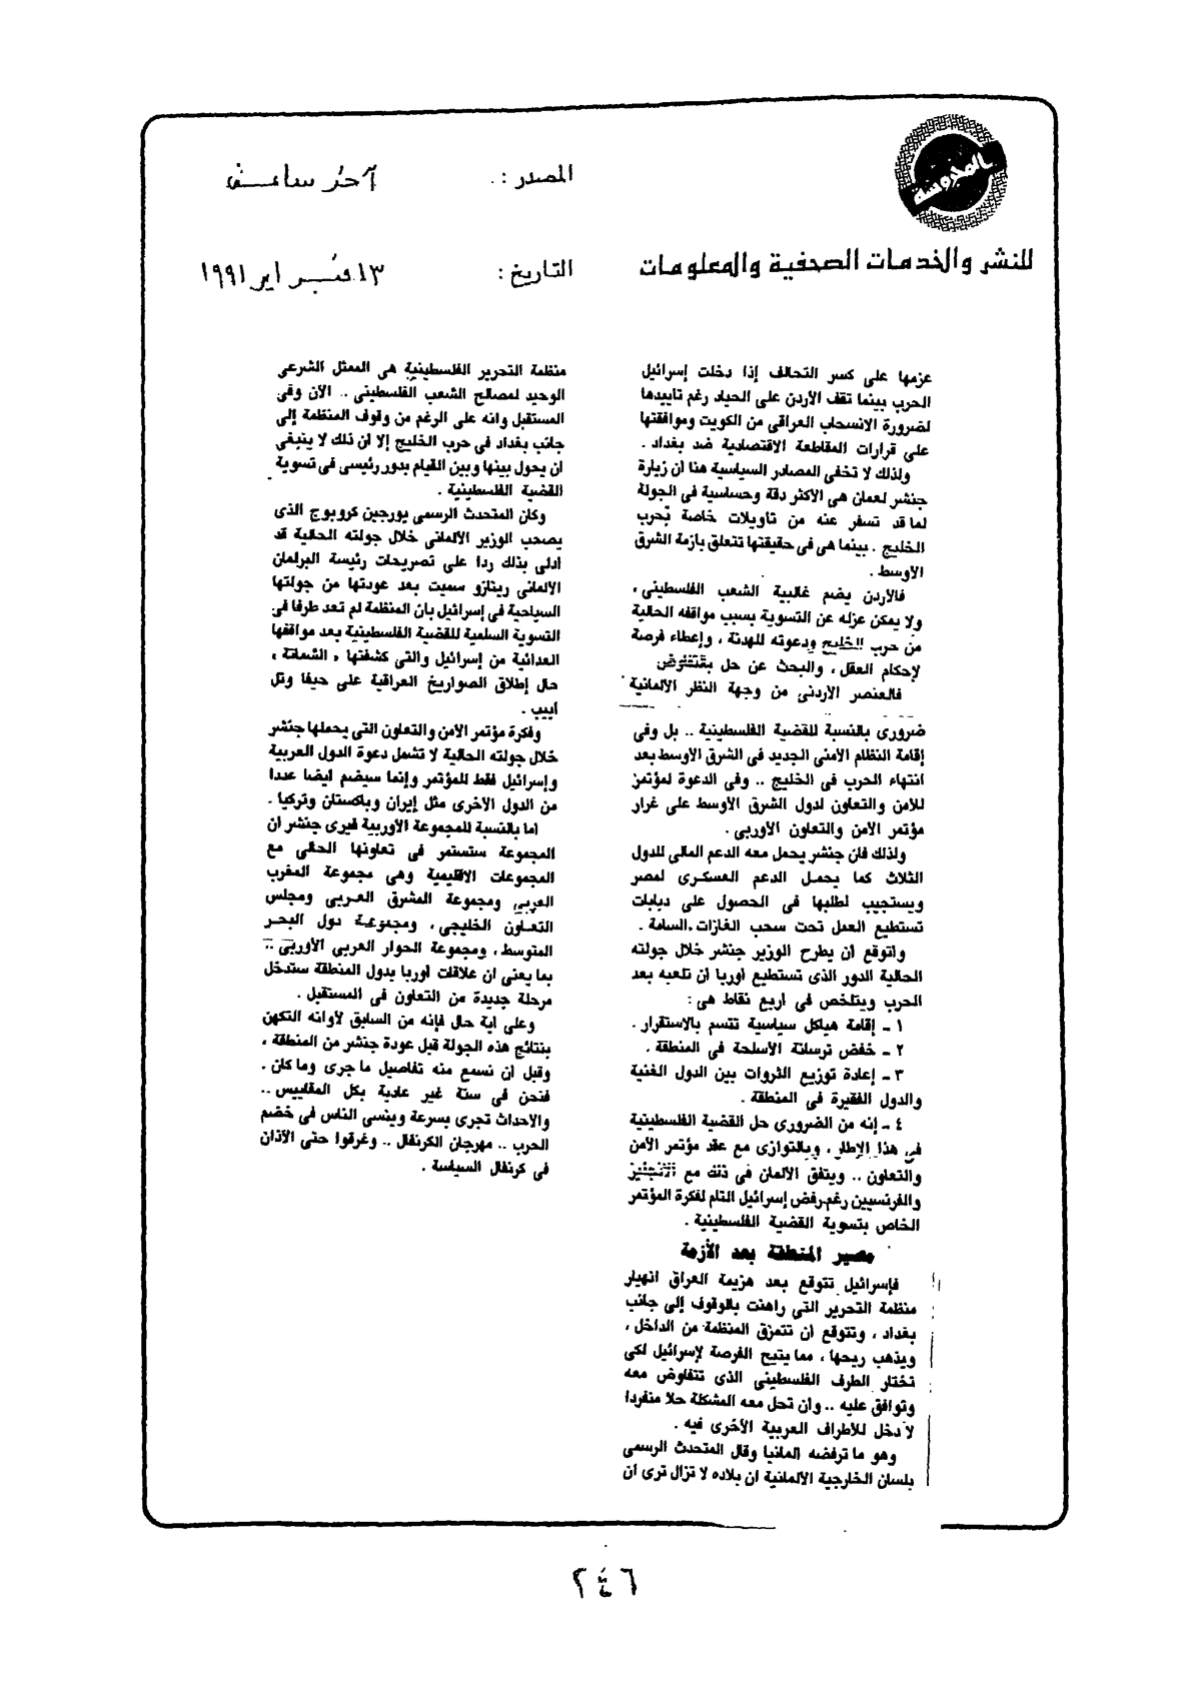 المحروسة
للنشر والخدمات الصحفية والمعلومات
المصدر : آخر ساعة
التاريخ : ١٣ فبراير ١٩٩١
عزمها على كسر التحالف إذا دخلت إسرائيل
الحرب بينما تقف الأردن على الحياد رغم تاييدها
لضرورة الانسحاب العراقى من الكويت وموافقتها
على قرارات المقاطعة الاقتصادية ضد بغداد .
ولذلك لا تخفى المصادر السياسية هنا ان زيارة
جنشر لعمان هى الاكثر دقة وحساسية فى الجولة
لما قد تسفر عنه من تاويلات خاصة بحرب
الخليج . بينما هى فى حقيقتها تتعلق بازمة الشرق
الاوسط .
فالاردن يضم غالبية الشعب الفلسطينى ،
ولا يمكن عزله عن التسوية بسبب مواقفه الحالية
من حرب الخليج ودعوته للهدنة ، وإعطاء فرصة
لإحكام العقل ، والبحث عن حل بقتفوض
فالعنصر الاردنى من وجهة النظر الالمانية
ضرورى بالنسبة للقضية الفلسطينية .. بل وفى
إقامة النظام الامنى الجديد فى الشرق الاوسط بعد
انتهاء الحرب فى الخليج .. وفى الدعوة لمؤتمر
للامن والتعاون لدول الشرق الاوسط على غرار
مؤتمر الامن والتعاون الأوربى .
ولذلك فان جنشر يحمل معه الدعم المالى للدول
الثلاث كما يحمل الدعم العسكرى لمصر
ويستجيب لطلبها فى الحصول على دبابات
تستطيع العمل تحت سحب الغازات السامة .
واتوقع ان يطرح الوزير جنشر خلال جولته
الحالية الدور الذى تستطيع أوربا ان تلعبه بعد
الحرب ويتلخص فى اربع نقاط هى :
١ ـ إقامة هياكل سياسية تتسم بالاستقرار .
٢ ـ خفض ترسانة الأسلحة فى المنطقة .
٣ ـ إعادة توزيع الثروات بين الدول الغنية
والدول الفقيرة فى المنطقة .
٤ ـ إنه من الضرورى حل القضية الفلسطينية
فى هذا الإطار ، وبالتوازى مع عقد مؤتمر الأمن
والتعاون .. ويتفق الالمان فى ذلك مع الانجليز
والفرنسيين رغم رفض إسرائيل التام لفكرة المؤتمر
الخاص بتسوية القضية الفلسطينية .
مصير المنطقة بعد الأزمة
فإسرائيل تتوقع بعد هزيمة العراق انهيار
منظمة التحرير التى راهنت بالوقوف إلى جانب
بغداد ، وتتوقع ان تتمزق المنظمة من الداخل ،
ويذهب ريحها ، مما يتيح الفرصة لإسرائيل لكى
تختار الطرف الفلسطينى الذى تتفاوض معه
وتوافق عليه .. وان تحل معه المشكلة حلا منفردا
لا دخل للاطراف العربية الأخرى فيه .
وهو ما ترفضه المانيا وقال المتحدث الرسمى
بلسان الخارجية الالمانية ان بلاده لا تزال ترى ان
منظمة التحرير الفلسطينية هى الممثل الشرعى
الوحيد لمصالح الشعب الفلسطينى .. الآن وفى
المستقبل وانه على الرغم من وقوف المنظمة إلى
جانب بغداد فى حرب الخليج إلا ان ذلك لا ينبغى
ان يحول بينها وبين القيام بدور رئيسى فى تسوية
القضية الفلسطينية .
وكان المتحدث الرسمى يورجين كروبوج الذى
يصحب الوزير الالمانى خلال جولته الحالية قد
ادلى بذلك ردا على تصريحات رئيسة البرلمان
الالمانى ريتازو سميت بعد عودتها من جولتها
السياحية فى إسرائيل بان المنظمة لم تعد طرفا فى
التسوية السلمية للقضية الفلسطينية بعد مواقفها
العدائية من إسرائيل والتى كشفتها ، الشماتة ،
حال إطلاق الصواريخ العراقية على حيفا وتل
أبيب .
وفكرة مؤتمر الامن والتعاون التى يحملها جنشر
خلال جولته الحالية لا تشمل دعوة الدول العربية
وإسرائيل فقط للمؤتمر وإنما سيضم ايضا عددا
من الدول الاخرى مثل إيران وباكستان وتركيا .
اما بالنسبة للمجموعة الأوربية فيرى جنشر ان
المجموعة ستستمر فى تعاونها الحالى مع
المجموعات الإقليمية وهى مجموعة المغرب
العربى ومجموعة المشرق العربى ومجلس
التعاون الخليجى ، ومجموعة دول البحر
المتوسط ، ومجموعة الحوار العربى الأوربى ..
بما يعنى ان علاقات أوربا بدول المنطقة ستدخل
مرحلة جديدة من التعاون فى المستقبل .
وعلى اية حال فإنه من السابق لأوانه التكهن
بنتائج هذه الجولة قبل عودة جنشر من المنطقة ،
وقبل ان نسمع منه تفاصيل ما جرى وما كان .
فنحن فى سنة غير عادية بكل المقاييس ..
والاحداث تجرى بسرعة وينسى الناس فى خضم
الحرب .. مهرجان الكرنفال .. وغرقوا حتى الآذان
فى كرنفال السياسة .
٢٤٦